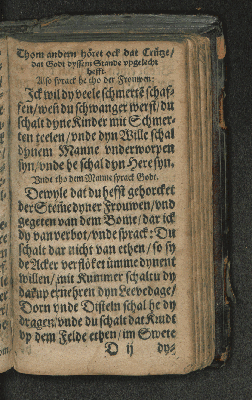 Thom andern höret ock dat Crütze/
dat Godt dyssem Stande vpgelecht
hefft.
Also sprack he tho der Frouwen:
Ick wil dy veele schmerte schaf-
fen/ wen du schwanger werst/ du
schalt dyne Kinder mit Schmer-
ten teelen/ vnde dyn Wille schal
dynem Manne vnderworpen
syn/ vnde he schal dyn Here syn.
Vnde tho dem Manne sprack Godt.
Dewyle dat du hefft gehorcket
der Stem̃e dyner Frouwen/ vnd
gegeten van dem Bome/ dar ick
dy van verbot/ vnde sprack: Du
schalt dar nicht van ethen/ so sy
de Acker verflöket ümme dynent
willen/ mit Kummer schaltu dy
darup ernehren dyn Leevedage/
Dorn vnde Disteln schal he dy
dragen/ vnde du schalt dat Krudt
vp dem Felde ethen/ im Swete
D ij dy-